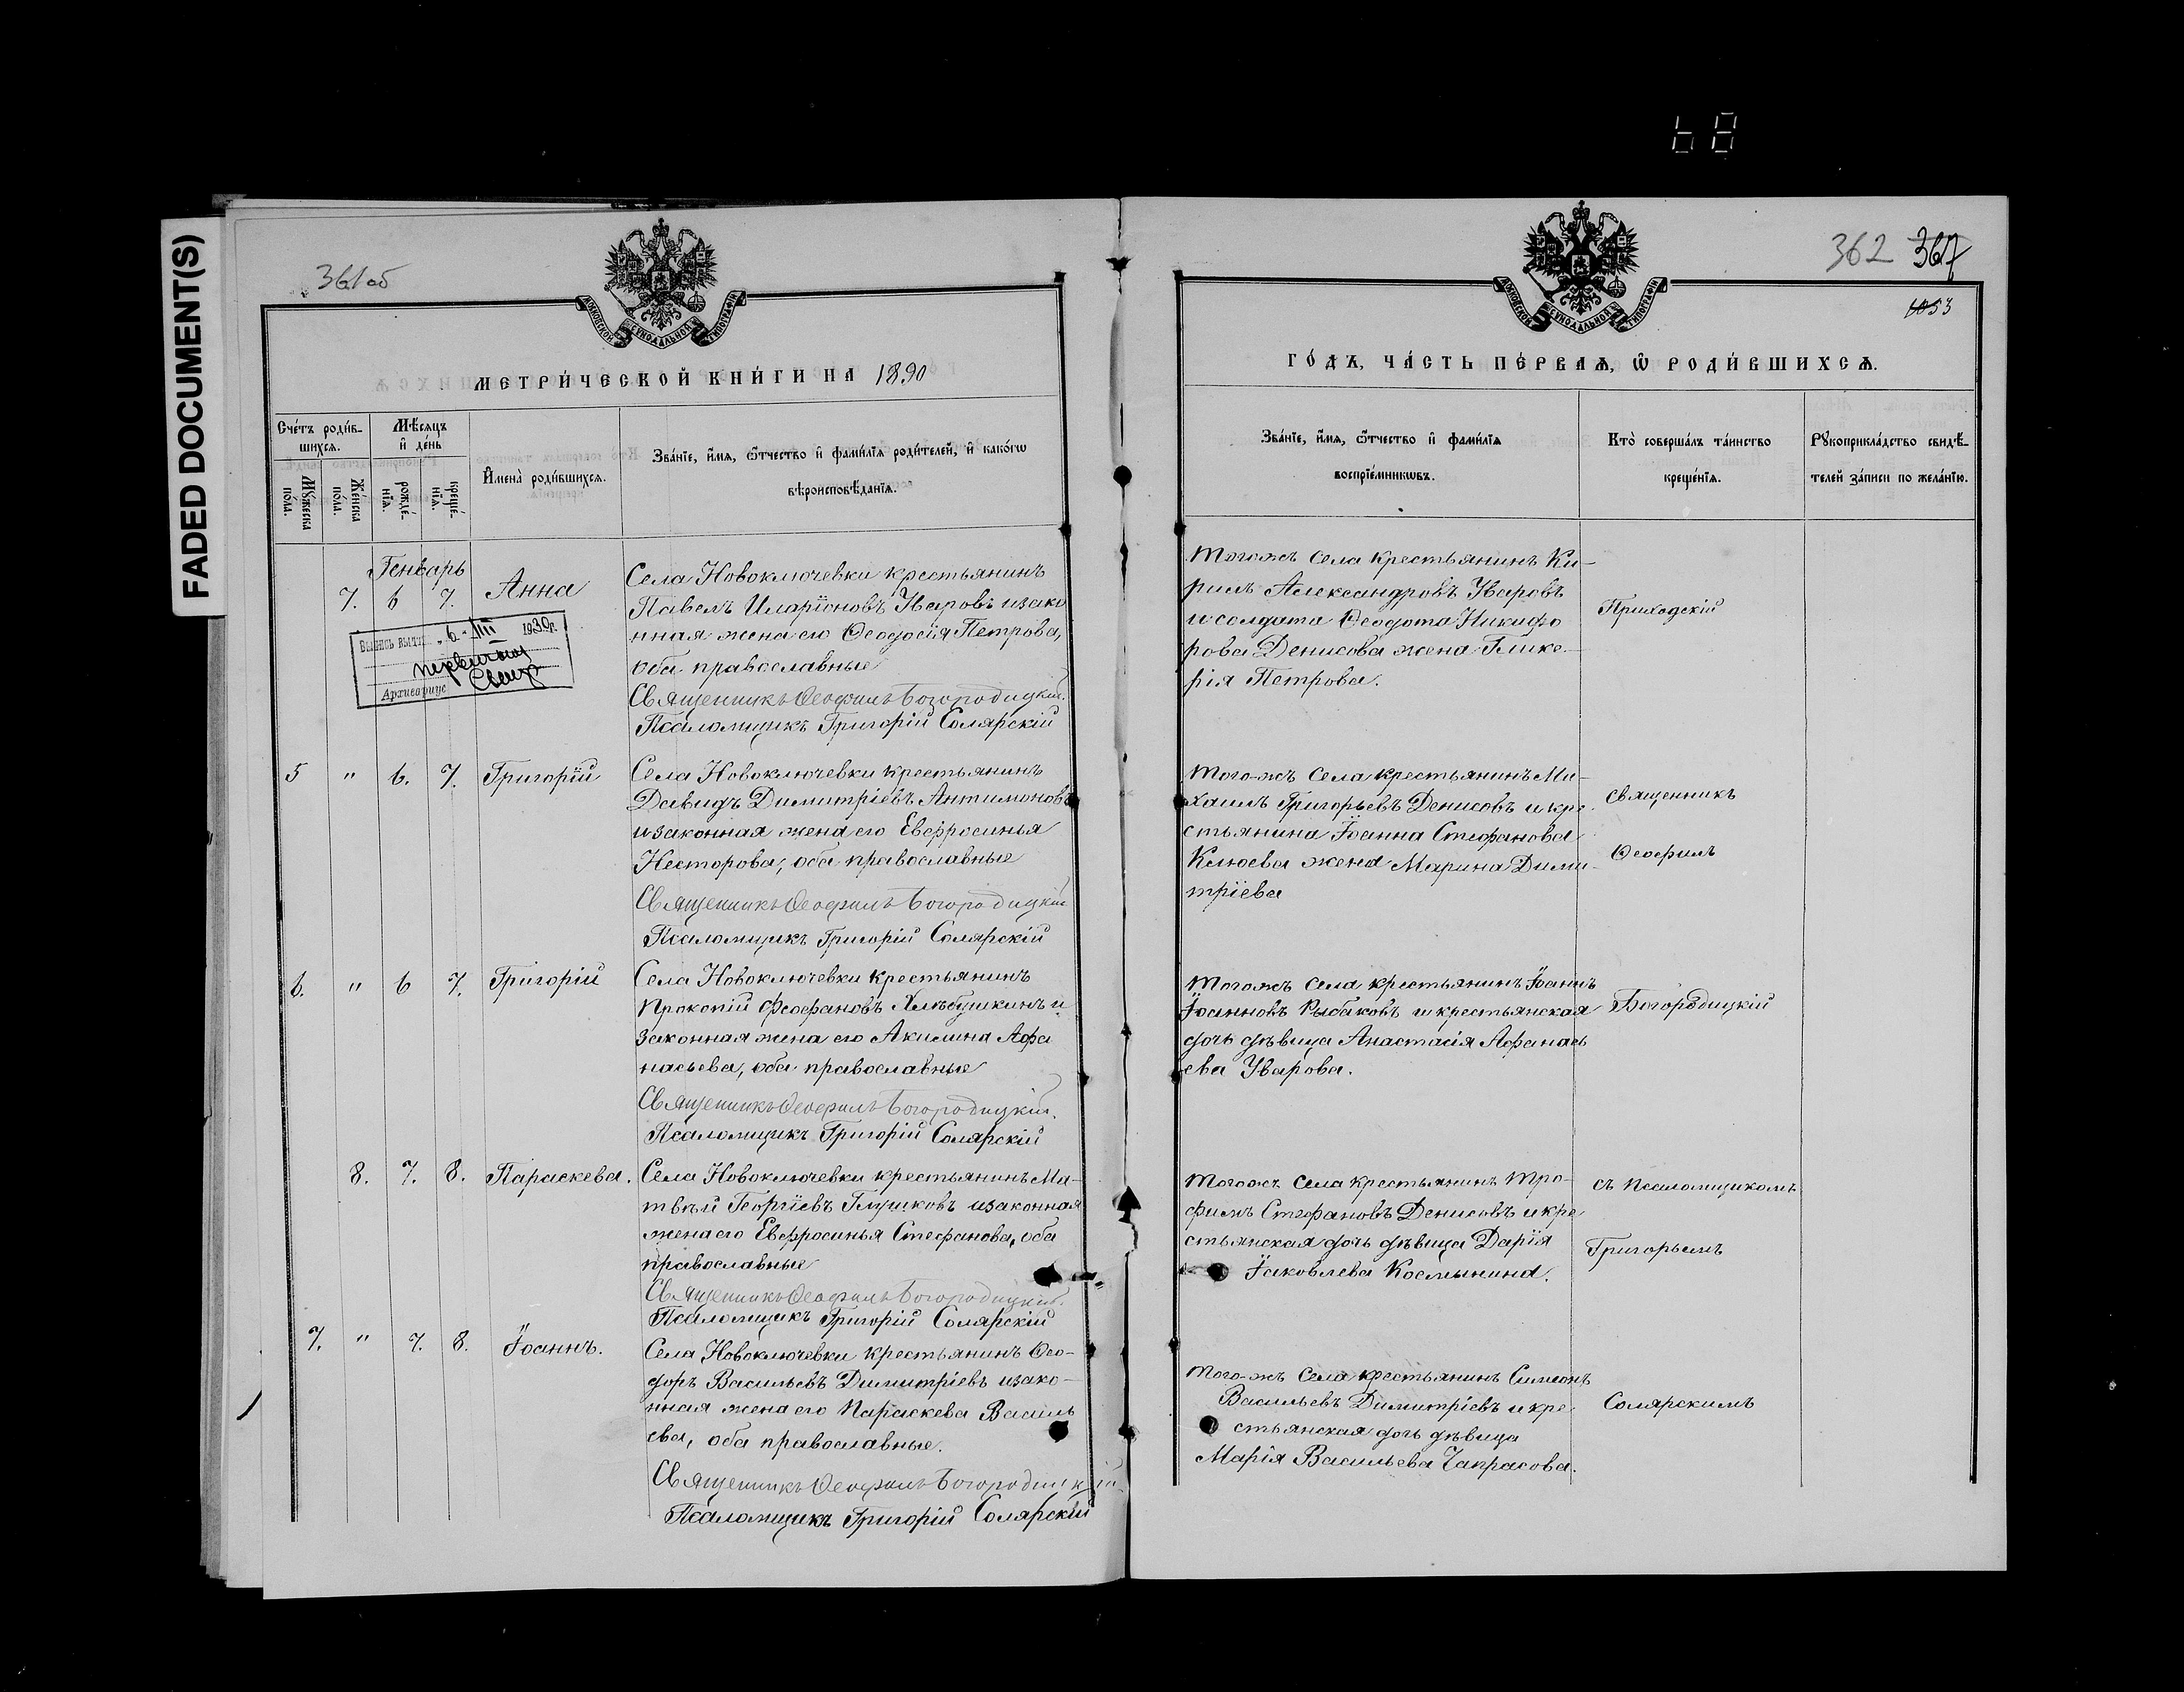 FADED DOCUMENT(S)
68
361 об
МОСКОВСКОЙ СѴНОДАЛЬНОЙ ТИПОГРАФІИ
МЕТРИ́ЧЕСКОЙ КНИ́ГИ НА 1890
Сче́тъ роди́в-
шихсѧ.
Мѣ́сяцъ
и҆ де́нь
Мꙋ́жеска
по́ла.
Же́нска
по́ла.
рожде́-
нїѧ.
креще́-
нїѧ.
И҆мена̀ роди́вшихсѧ.
Зва́нїе, и҆́мѧ, ѻ҆́тчество и҆ фами́лїѧ роди́телей, и҆ како́гѡ
вѣроисповѣ́данїѧ.
Генварь
7. 6 7. Анна
Села Новоключевки крестьянинъ
Павелъ Иларіоновъ Уваровъ и зако
нная жена его Ѳеодосія Петрова,
оба православные
Священникъ Ѳеофилъ Богородицкій.
Псаломщикъ Григорій Солярскій
Выпись выдан 6-III 1930г.
Архивариус
5 " 6. 7. Григорій
Села Новоключевки крестьянинъ
Давидъ Димитріевъ Антимоновъ
и законная жена его Евфросинья
Несторова, оба православные
Священникъ Ѳеофилъ Богородицкій
Псаломщикъ Григорій Солярскій
6. " 6 7. Григорій
Села Новоключевки крестьянинъ
Прокопій Феофановъ Хлѣбушкинъ и
законная жена его Акилина Афа
насьева, оба православные
Священникъ Ѳеофилъ Богородицкій.
Псаломщикъ Григорій Солярскій
8. 7. 8. Параскева.
Села Новоключевки крестьянинъ Ма-
твѣй Георгіевъ Глушковъ и законная
жена его Евфросинья Стефанова, оба
православные
Священникъ Ѳеофилъ Богородицкій.
Псаломщикъ Григорій Солярскій
7. " 7. 8. Іоаннъ.
Села Новоключевки крестьянинъ Ѳео-
доръ Васильевъ Димитріевъ и зако-
нная жена его Параскева Василь
ева, оба православные.
Священникъ Ѳеофилъ Богородицкій
Псаломщикъ Григорій Солярскій
362 367
1053
МОСКОВСКОЙ СѴНОДАЛЬНОЙ ТИПОГРАФІИ
ГО́ДЪ, ЧА́СТЬ ПЕ́РВАѦ, Ѡ҆ РОДИ́ВШИХСѦ.
Зва́нїе, и҆́мѧ, ѻ҆́тчество и҆ фами́лїѧ
воспрїе́мникѡвъ.
Кто̀ соверша́лъ та́инство
креще́нїѧ.
Рꙋкоприкла́дство свидѣ́-
телей за́писи по жела́нїю.
Тогожъ села крестьянинъ Ки-
рилъ Александровъ Уваровъ
и солдата Ѳеодота Никифо
рова Денисова жена Глике-
рія Петрова.
Приходскій
Того-жъ села крестьянинъ Ми-
хаилъ Григорьевъ Денисовъ и кре
стьянина Іоанна Стефанова
Клюева жена Марина Дими-
тріева
священникъ
Ѳеофилъ
Тогожъ села крестьянинъ Іоаннъ
Іоанновъ Рыбаковъ и крестьянская
дочь дѣвица Анастасія Афанась
ева Уварова.
Богородицкій
Тогожъ села крестьянинъ Тро-
фимъ Стефановъ Денисовъ и кре
стьянская дочь дѣвица Дарія
Іаковлева Космынина.
съ псаломщикомъ
Григорьемъ
Того-жъ села крестьянинъ Симеонъ
Васильевъ Димитріевъ и кре
стьянская дочь дѣвица
Марія Васильева Чапрасова.
Солярскимъ